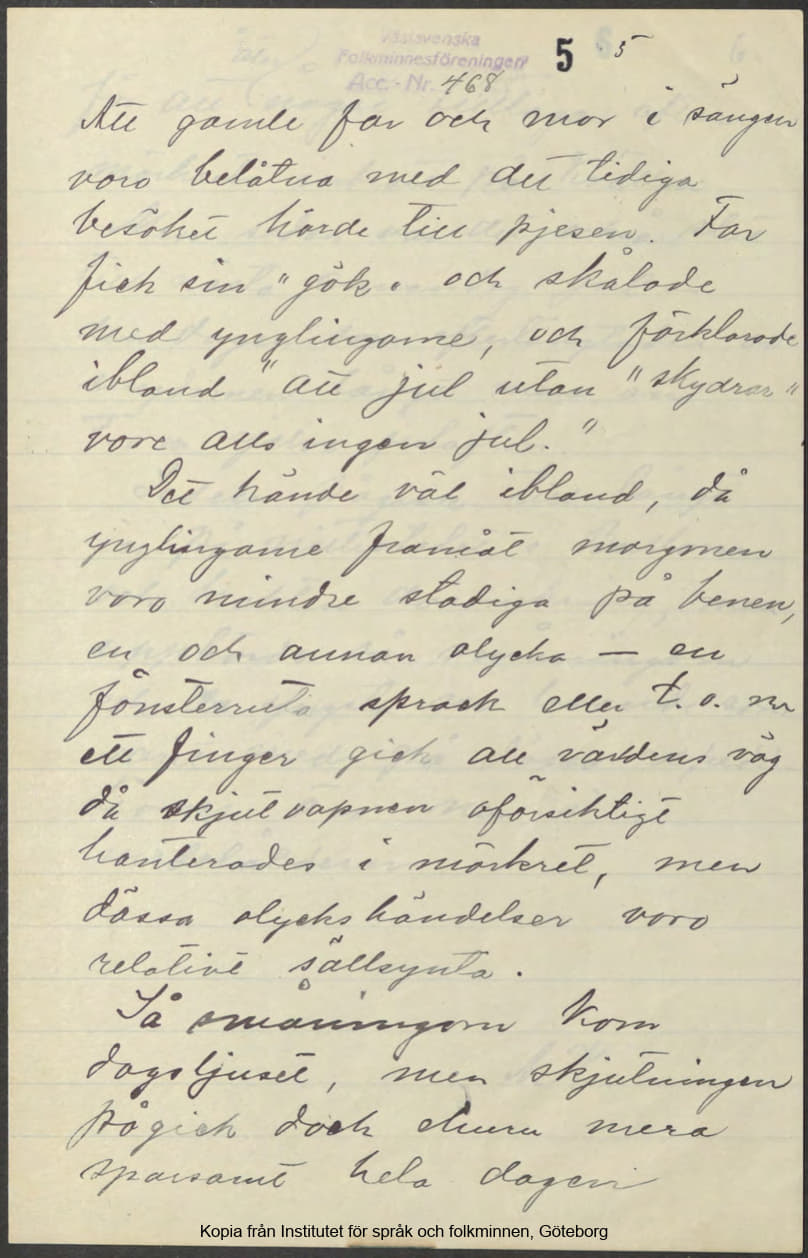 Västsvenska
Folkminnesföreningen
Acc.-Nr. 468
5 5
Att gamle far och mor i sängen
voro belåtna med det tidiga
besöket hörde till pjesen. Far
fick sin "gök" och skålade
med ynglingarne, och förklarade
ibland "att jul utan "skydrar"
vore alls ingen jul."
Det hände väl ibland, då
ynglingarne framåt morgonen
voro mindre stadiga på benen,
en och annan olycka — en
fönsterruta sprack eller t. o. m
ett finger gick all världens väg
då skjutvapnen oförsiktigt
hanterades i mörkret, men
dässa olyckshändelser voro
relativt sällsynta.
Så småningom kom
dagsljuset, men skjutningen
pågick dock ehuru mera
sparsamt hela dagen
Kopia från Institutet för språk och folkminnen, Göteborg